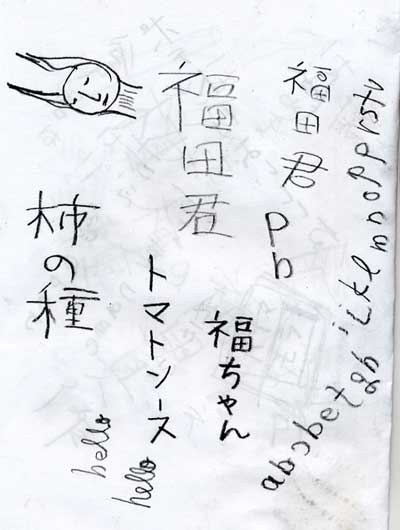 福田君
福田君
福ちゃん
トマトソース
柿の種
hello
hello